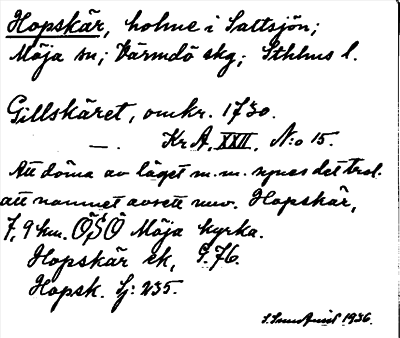 Hopskär, holme i Saltsjön;
Möja sn; Värmdö skg; Sthlms l.
Gillskäret, omkr. 1730.
—. KrA, XXII, N:o 15.
Att döma av läget m.m. synes det trol.
att namnet avsett nuv. Hopskär,
7,9 km. ÖSÖ Möja kyrka.
Hopskär ek, G.76.
Hopsk. Sj: 235.
1936.